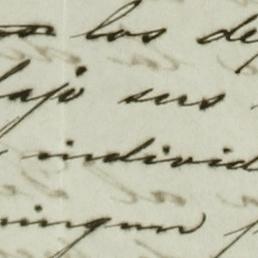 los de
bajo sus
individ
ningun